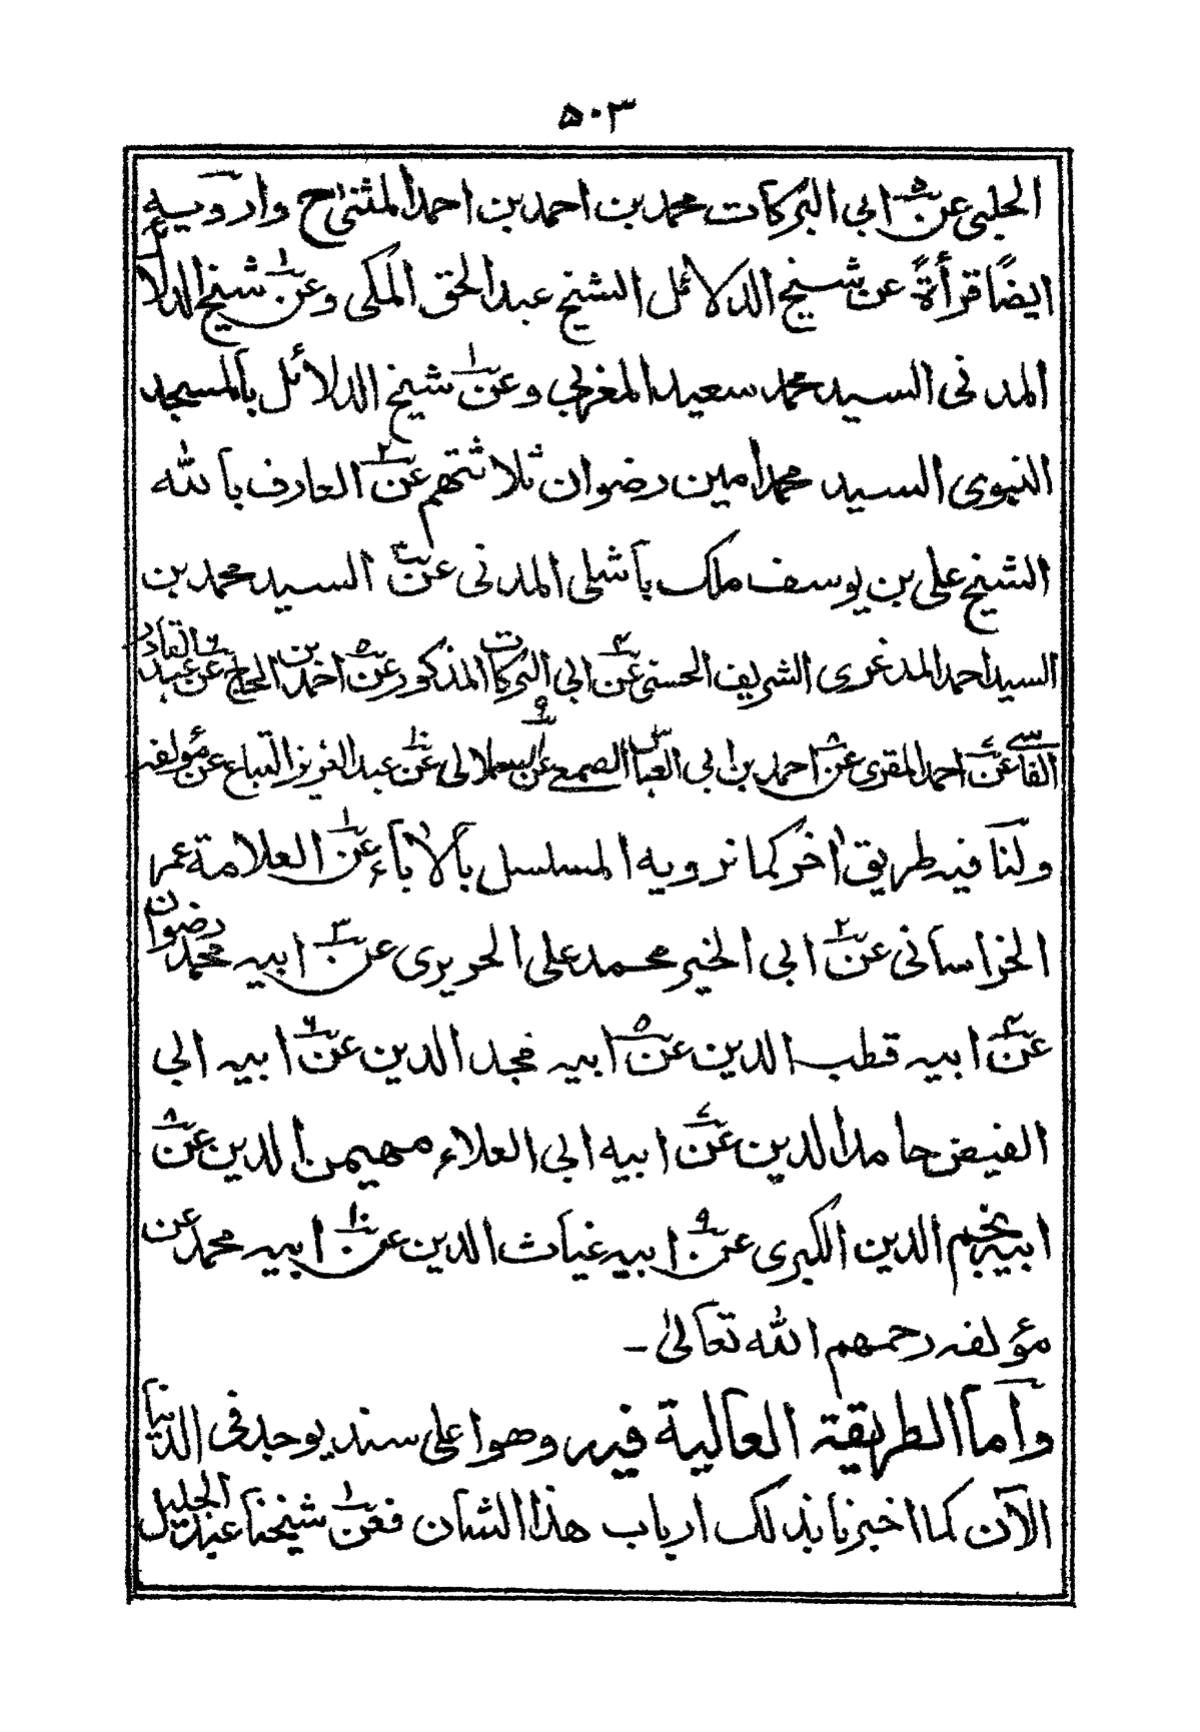 ۵۰۳
الحلبی عن۵ ابی البرکات محمد بن احمد بن احمد المثنی ح وارویه
ایضًا قرأةً عن شیخ الدلائل الشیخ عبد الحق المکی وعن۱ شیخ الدلائل
المدنی السید محمد سعید المغربی وعن۱ شیخ الدلائل بالمسجد
النبوی السید محمد امین رضوان ثلاثتهم عن۲ العارف بالله
الشیخ علی بن یوسف ملک باشلی المدنی عن۳ السید محمد بن
السید احمد المدغری الشریف الحسنی عن۴ ابی البرکات المذکور عن۵ احمد بن الحاج عن۶ عبد القادر
الفاسی عن۷ احمد المقری عن۸ احمد بن ابی العباس الصمعی عن۹ السملالی عن۱۰ عبد العزیز التباع عن مؤلفه
ولنا فیه طریق اخر کما نرویه المسلسل بالاٰباء عن۱ العلامة عمر
الخراسانی عن۲ ابی الخیر محمد علی الحریری عن۳ ابیه محمد رضوان
عن۴ ابیه قطب الدین عن۵ ابیه مجد الدین عن۶ ابیه ابی
الفیض حامد الدین عن۷ ابیه ابی العلاء مهیمن الدین عن۸
ابیه نجم الدین الکبری عن۹ ابیه غیاث الدین عن۱۰ ابیه محمد عن
مؤلفه رحمهم الله تعالیٰ ۔
وآما الطریقة العالیة فیه وهو اعلی سند یوجد فی الدنیا
الآن کما اخبرنا بذلک ارباب هذا الشان فعن۱ شیخنا عبد الجلیل